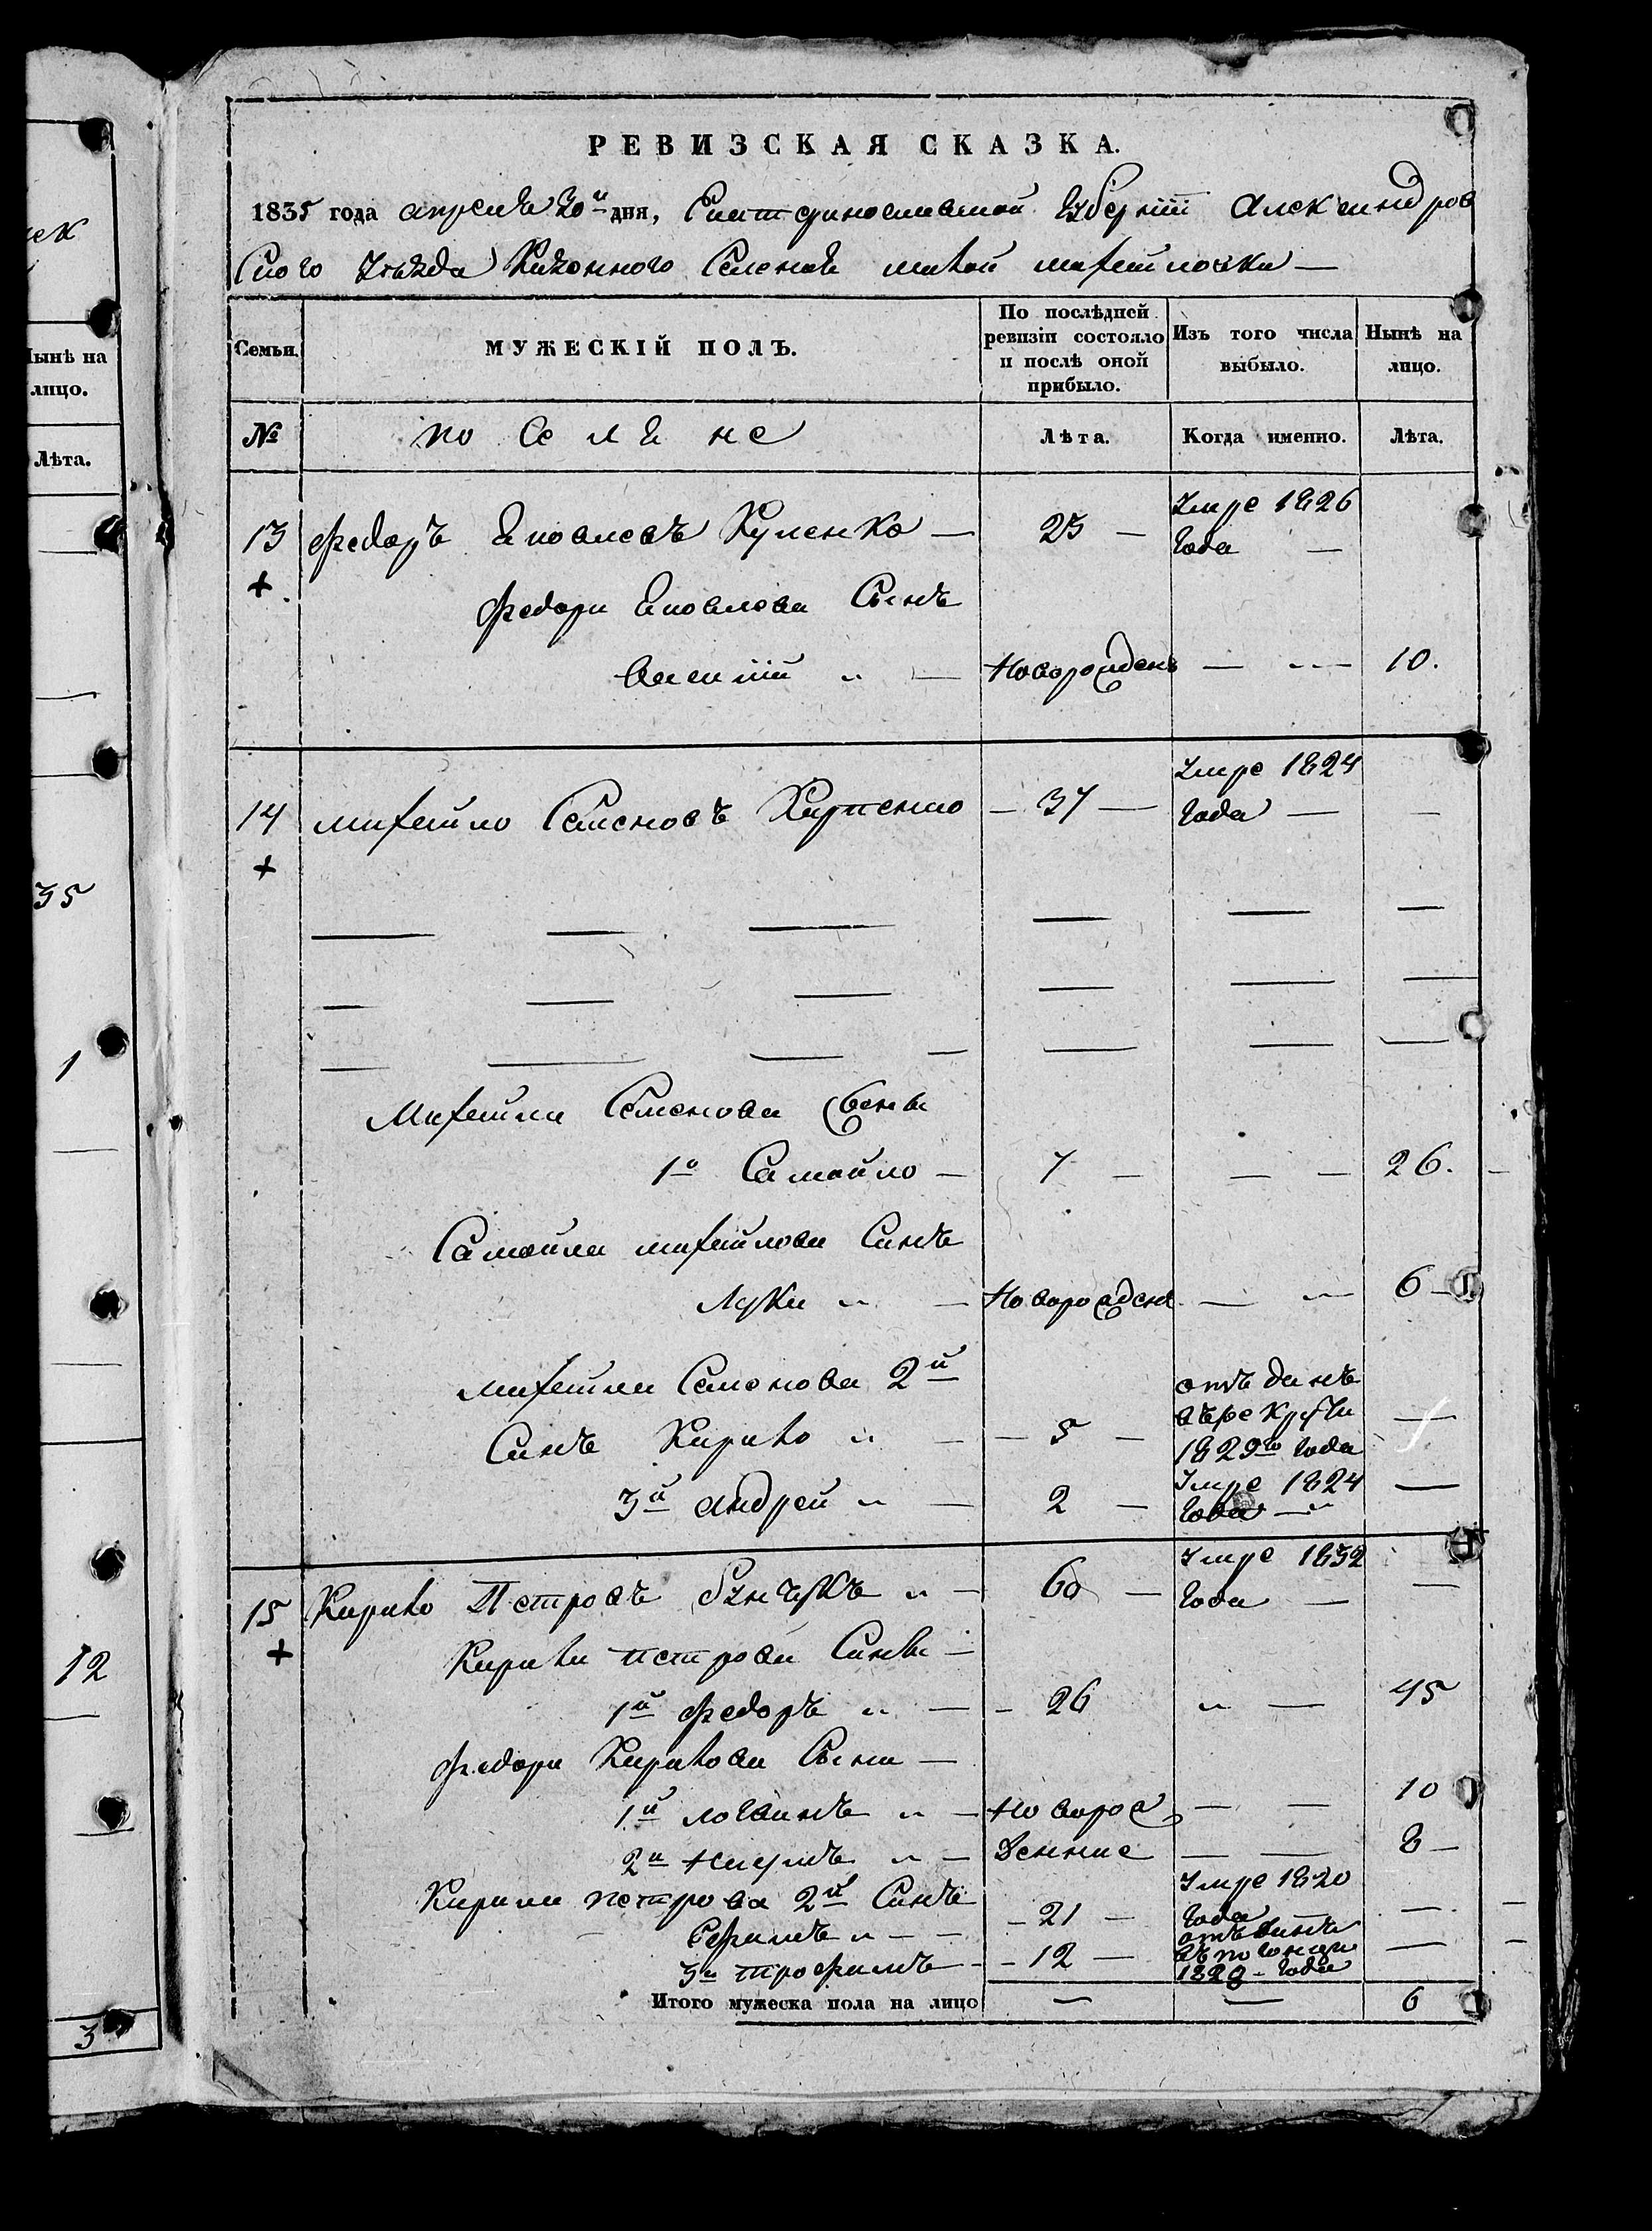 РЕВИЗСКАЯ СКАЗКА.
1835 года апреля 30й дня, Екатеринославской губернии Александров
ского уезда Казенного Селения малой михайловки —
Семьи. МУЖЕСКІЙ ПОЛЪ. По послѣдней ревизіи состояло и послѣ оной прибыло. Изъ того числа выбыло. Нынѣ на лицо.
№ поселяне Лѣта. Когда именно. Лѣта.
13 Федоръ Яковлевъ Куленко — 25 — Умре 1826 года —
Федора Яковлева Сынъ
Василий — Новорожденъ — — 10.
14 михайло Семеновъ — 37 — Умре 1824 года — —
Михайла Семенова Сыны
1й Самойло — 7 — — — 26.
Самойла михайлова Синъ
Лука — Новорожденъ — — 6
михайла Семенова 2й
Синъ Кирило — 5 — отъданъ върекруты 1829го года —
3й андрей — 2 — Умре 1824 года —
15 Кирило Петровъ бунчукъ — 60 — Умре 1832 года —
Кирила петрова Сины —
1й Федоръ — 26 — 45
Федора Кирилова Сыни —
1й логвинъ — Новорож — — 10
2й наумъ — денние — — 8 —
Кирила петрова 2й Синъ
Ефимъ — 21 — Умре 1820 года —
3й трофимъ — 12 — 1828 года —
Итого мужеска пола на лицо — — 6
Нынѣ на
лицо.
Лѣта.
35
1
12
3